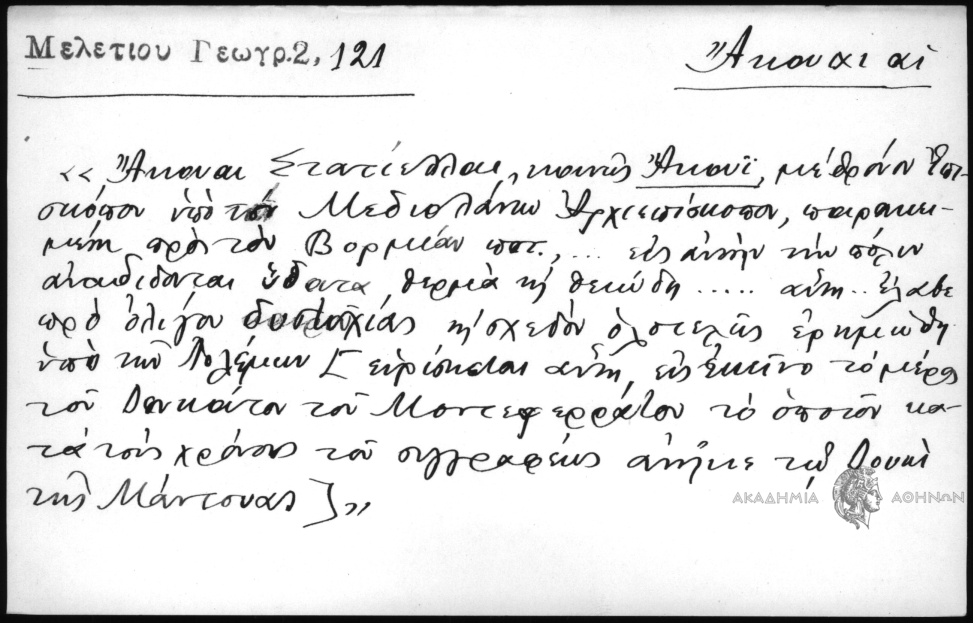 Μελετίου Γεωγρ. 2, 121
Ἄκουαι αἱ
«Ἄκουαι Στατιελλαι, κοινῶς Ἄκουϊ, μὲ θρόνον Ἐπι-
σκόπου ὑπὸ τὸν Μεδιολάνων Ἀρχιεπίσκοπον, παρακει-
μένη πρὸς τὸν Βορμίαν ποτ., ... εἰς αὐτὴν τὴν πόλιν
ἀναδίδονται ὕδατα θερμὰ κỳ θειώδη ..... αὕτη .. ἔλαβε
πρὸ ὀλίγου δυστυχίας κỳ σχεδὸν ὁλοτελῶς ἐρημώθη
ὑπὸ τῶν Πολέμων [εὑρίσκεται αὕτη, εἰς ἐκεῖνο τὸ μέρος
τοῦ Δουκάτου τοῦ Μοντεφερράτου τὸ ὁποῖον κα-
τὰ τοὺς χρόνους τοῦ συγγραφέως ἀνῆκε τῷ Δουκὶ
τῆς Μάντουας]»
ΑΚΑΔΗΜΙΑ ΑΘΗΝΩΝ